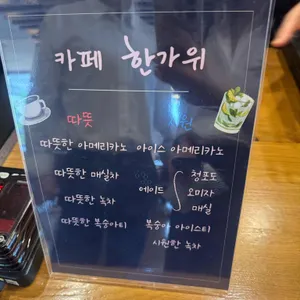 카페 한가위
따뜻
따뜻한 아메리카노 아이스 아메리카노
따뜻한 매실차
청포도
에이드 오미자
따뜻한 녹차
매실
따뜻한 복숭아티 복숭아 아이스티
시원한 녹차